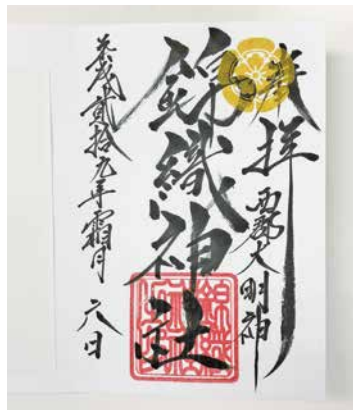 奉拝
西郡大明神
錦織神社
平成貳拾九年霜月 六日